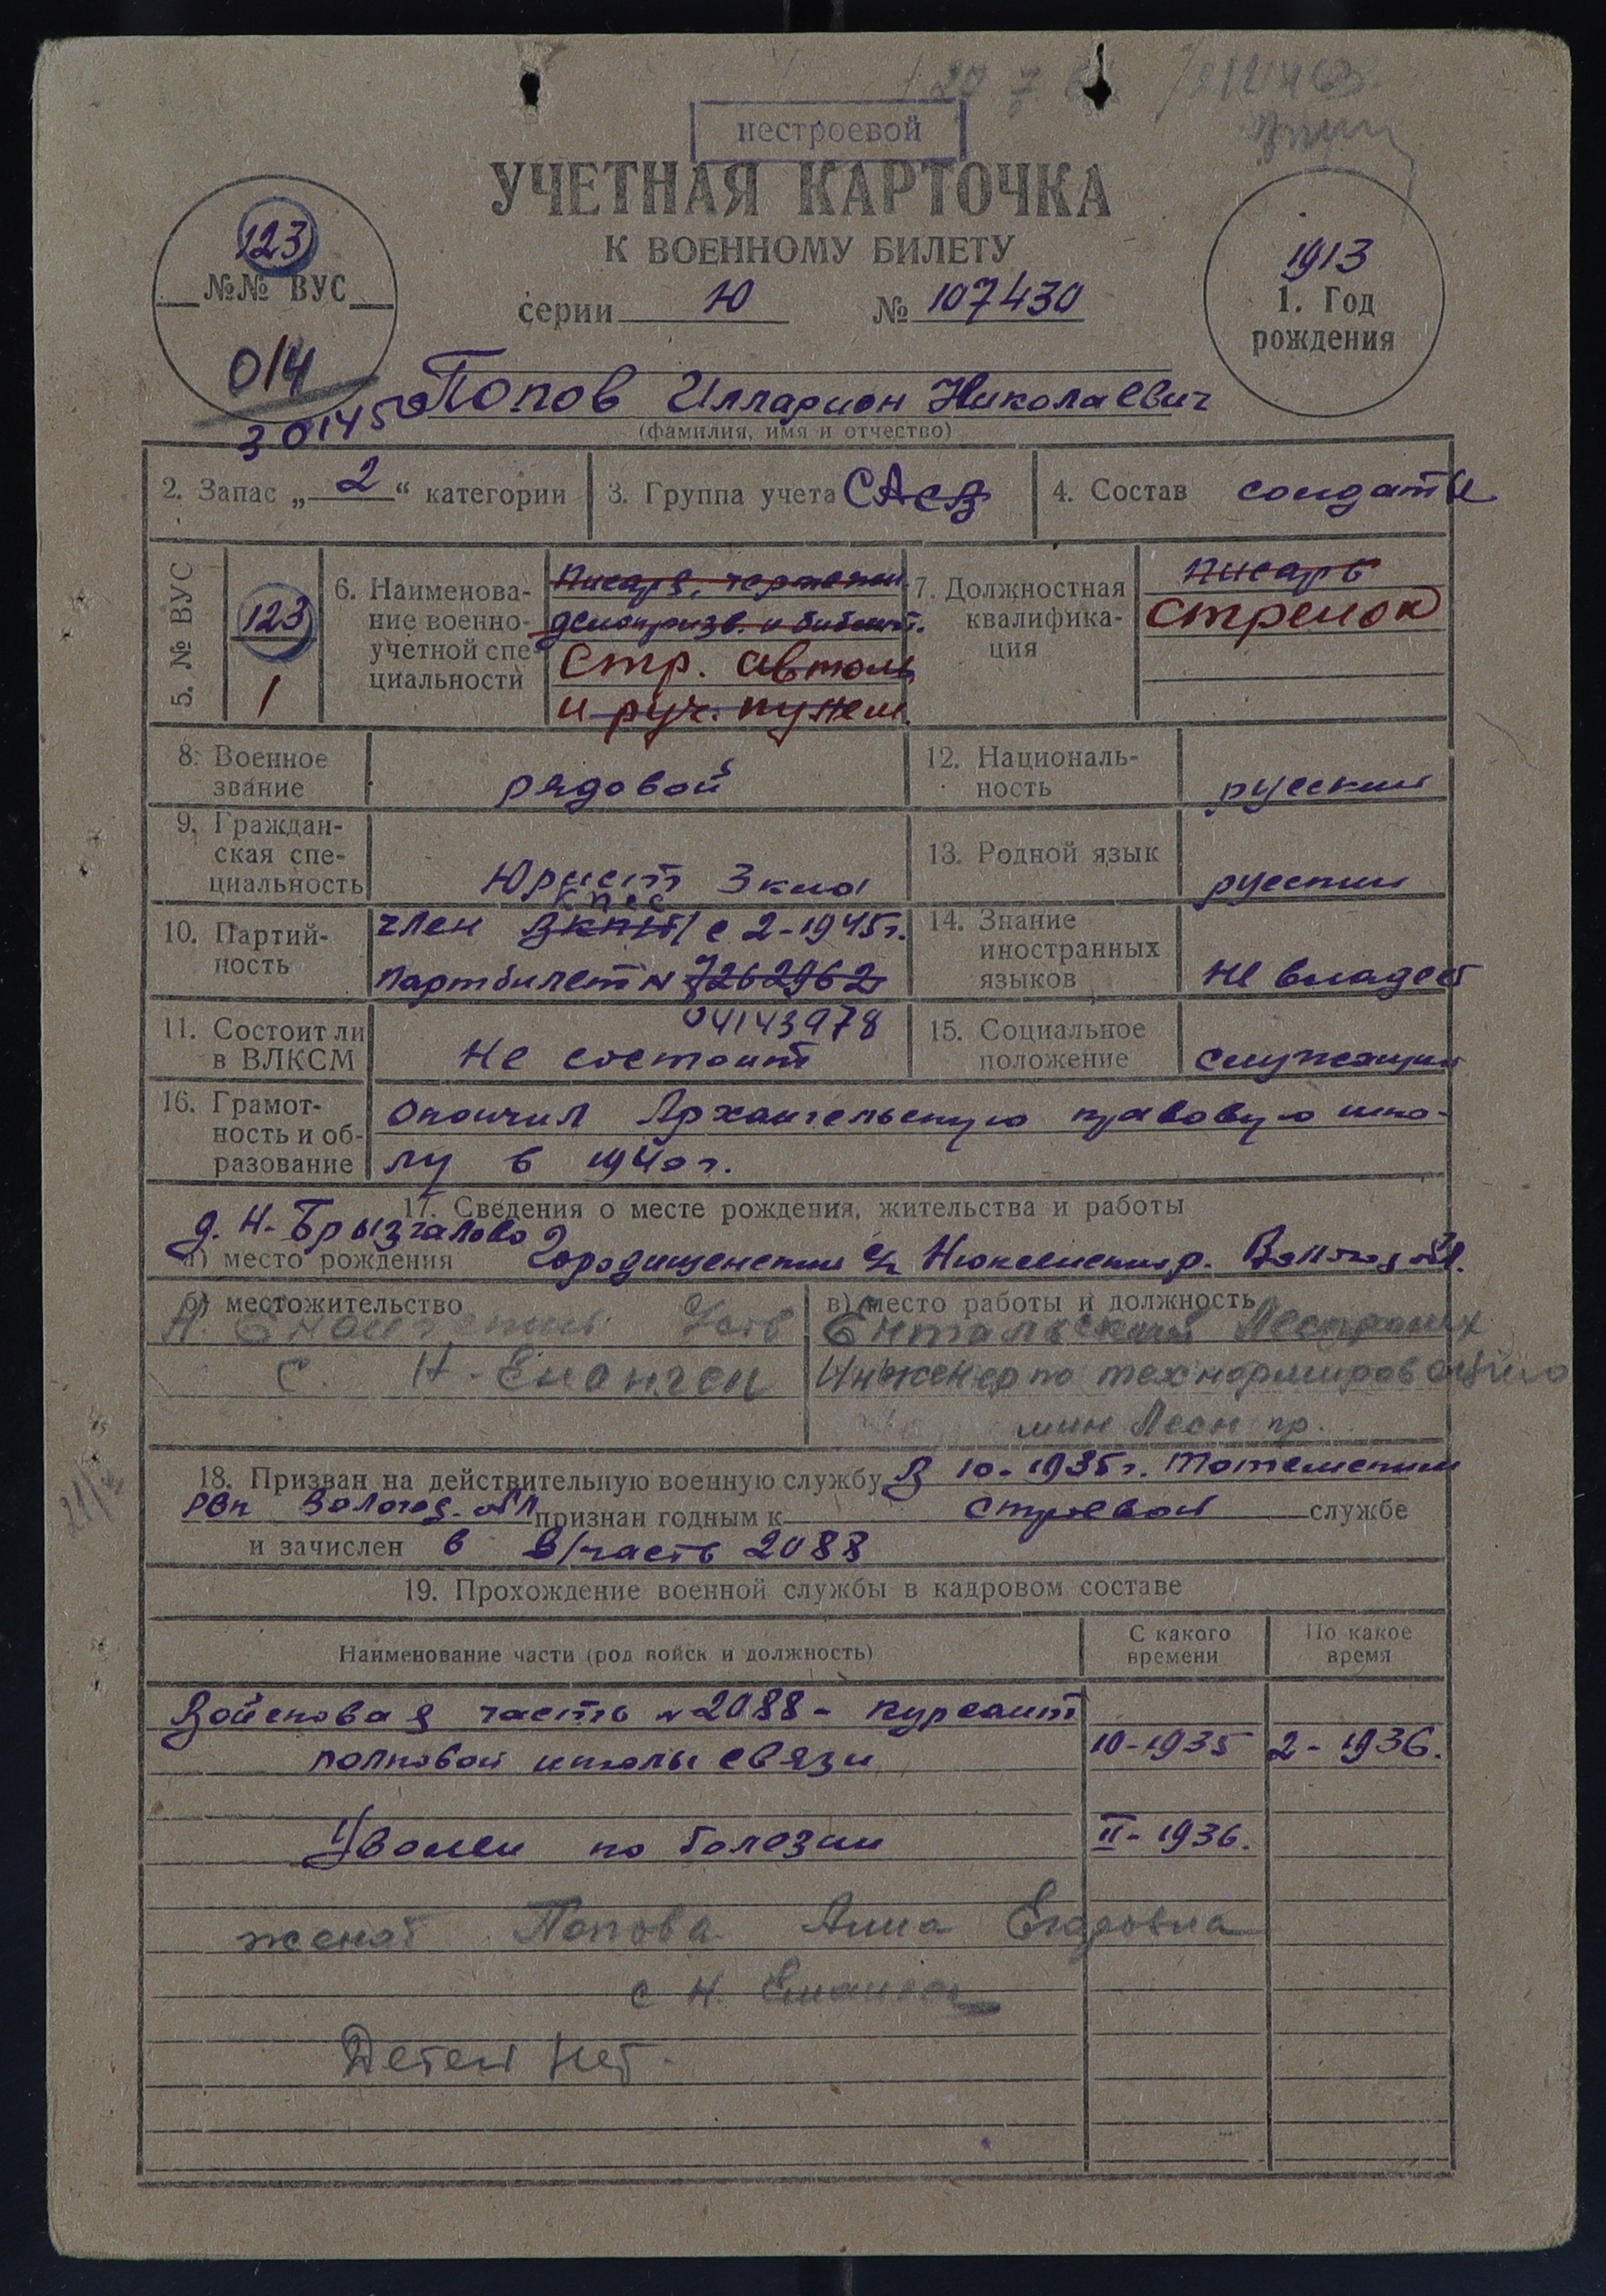 27 7
нестроевой
УЧЕТНАЯ КАРТОЧКА
К ВОЕННОМУ БИЛЕТУ
серии Ю № 107430
123
№№ ВУС
014
1913
1. Год
рождения
Попов Илларион Николаевич
(фамилия, имя и отчество)
2. Запас „ 2 “ категории
3. Группа учета САСВ
4. Состав солдаты
5. № ВУС
123
1
6. Наименова-
ние военно-
учетной спе-
циальности
Писаря, чертежн.
делопризв. и библиот.
Стр. автом
и руч. пулем.
7. Должностная
квалифика-
ция
писарь
стрелок
8. Военное
звание
рядовой
12. Националь-
ность
русский
9. Граждан-
ская спе-
циальность
Юрист 3 кла
13. Родной язык
русский
10. Партий-
ность
КПСС
член ВКП(б) с 2-1945 г.
партбилет № 7262962
04143978
14. Знание
иностранных
языков
не владеет
11. Состоит ли
в ВЛКСМ
Не состоит
15. Социальное
положение
служащий
16. Грамот-
ность и об-
разование
окончил Архангельскую правовую шко-
лу в 1940 г.
17. Сведения о месте рождения, жительства и работы
д. Н-Брызгалово
а) место рождения Городищенский Нюксенский р. Вологод обл.
б) местожительство
с. Н-Енангск
в) место работы и должность
Ентальский Леспромх
Инженер по технормированию
мин Лесн пр.
18. Призван на действительную военную службу В 10-1935 г. Тотемским
РВК Вологод. обл признан годным к строевой службе
и зачислен в в/часть 2088
19. Прохождение военной службы в кадровом составе
Наименование части (род войск и должность)
С какого
времени
По какое
время
Войсковая часть № 2088 - курсант
полковой школы связи 10-1935 2-1936.
Уволен по болезни II-1936.
женат Попова Анна
с Н. Енангск
Детей нет.